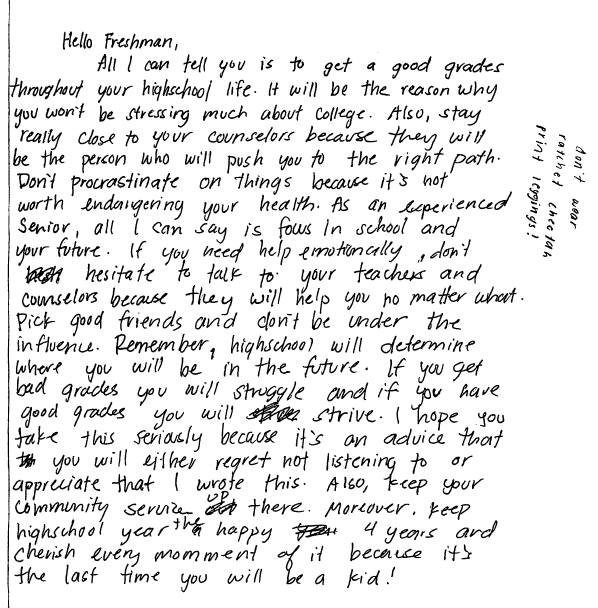 Hello Freshman,
All I can tell you is to get a good grades
throughout your highschool life. It will be the reason why
you won't be stressing much about college. Also, stay
really close to your counselors because they will
be the person who will push you to the right path.
Don't procrastinate on things because it's not
worth endangering your health. As an experienced
Senior, all I can say is focus in school and
your future. If you need help emotionally, don't
hesitate to talk to your teachers and
counselors because they will help you no matter what.
Pick good friends and don't be under the
influence. Remember, highschool will determine
where you will be in the future. If you get
bad grades you will struggle and if you have
good grades you will strive. I hope you
take this seriously because it's an advice that
you will either regret not listening to or
appreciate that I wrote this. Also, keep your
community service up there. Moreover, keep
highschool year the happy 4 years and
cherish every momment of it because it's
the last time you will be a kid!
don't wear
ratchet
print leggings!